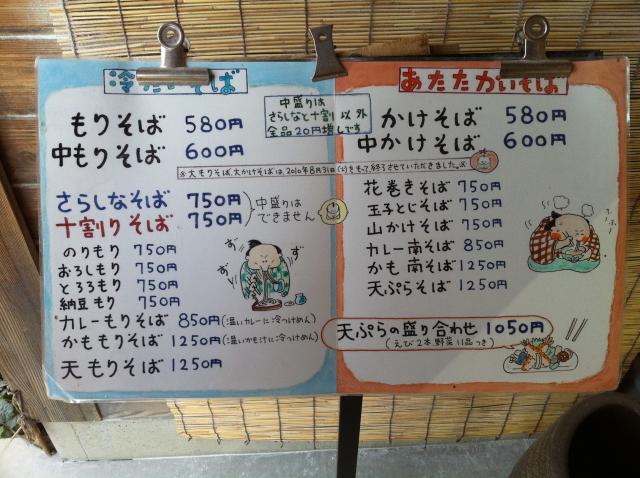 冷たいそば
もりそば 580円
中もりそば 600円
中盛りは
さらしなと十割以外
全品20円増しです
※大もりそば、大かけそばは、2010年8月31日(火)をもって、終了させていただきました。※
さらしなそば 750円
十割りそば 750円
中盛りは
できません
のりもり 750円
おろしもり 750円
とろろもり 750円
納豆もり 750円
カレーもりそば 850円(温いカレーに冷つけめん)
かももりそば 1250円(温いかも汁に冷つけめん)
天もりそば 1250円
ずずずず
あたたかいそば
かけそば 580円
中かけそば 600円
花巻きそば 750円
玉子とじそば 750円
山かけそば 750円
カレー南そば 850円
かも南そば 1250円
天ぷらそば 1250円
天ぷらの盛り合わせ 1050円
(えび2本、野菜11品つき)